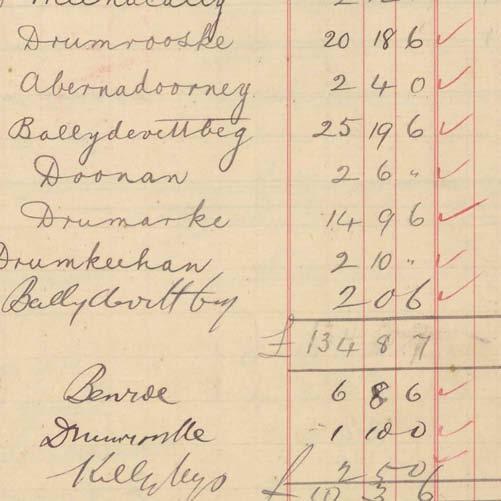 Drumrooske 20 18 6 ✓
Abernadoorney 2 4 0 ✓
Ballydevittbeg 25 19 6 ✓
Doonan 2 6 " ✓
Drumarke 14 9 6 ✓
Drumkeehan 2 10 " ✓
Ballydevitt beg 2 0 6 ✓
£ 134 8 7
Benroe 6 8 6 ✓
1 10 0 ✓
Killybegs 2 5 0 ✓
£ 10 3 6